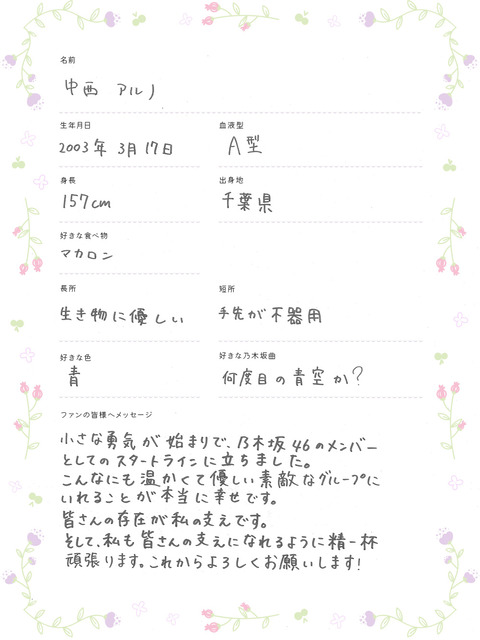 名前
中西 アルノ
生年月日 血液型
2003年 3月 17日 A型
身長 出身地
157cm 千葉県
好きな食べ物
マカロン
長所 短所
生き物に優しい 手先が不器用
好きな色 好きな乃木坂曲
青 何度目の青空か?
ファンの皆様へメッセージ
小さな勇気が始まりで、乃木坂46のメンバー
としてのスタートラインに立ちました。
こんなにも温かくて優しい素敵なグループに
いれることが本当に幸せです。
皆さんの存在が私の支えです。
そして、私も皆さんの支えになれるように精一杯
頑張ります。これからよろしくお願いします!